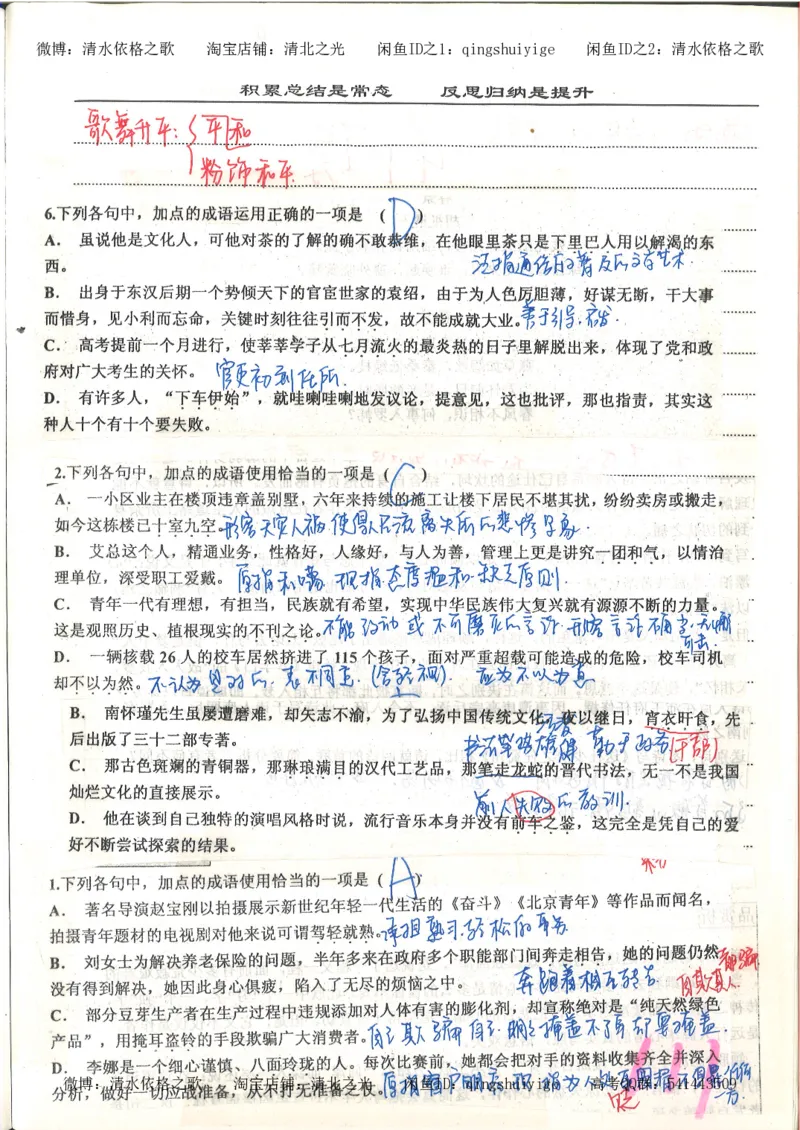 微博：清水依格之歌 淘宝店铺：清北之光 闲鱼ID之1：qingshuiyige 闲鱼ID之2：清水依格之歌
积累总结是常态 反思归纳是提升
歌舞升平：平和
粉饰和平
6.下列各句中，加点的成语运用正确的一项是 （ D ）
A． 虽说他是文化人，可他对茶的了解的确不敢恭维，在他眼里茶只是下里巴人用以解渴的东
西。
泛指通俗的普及的文学艺术.
B． 出身于东汉后期一个势倾天下的官宦世家的袁绍，由于为人色厉胆薄，好谋无断，干大事
而惜身，见小利而忘命，关键时刻往往引而不发，故不能成就大业。善于引导.
C． 高考提前一个月进行，使莘莘学子从七月流火的最炎热的日子里解脱出来，体现了党和政
府对广大考生的关怀。 官吏初到任所
D． 有许多人，“下车伊始”，就哇喇哇喇地发议论，提意见，这也批评，那也指责，其实这
种人十个有十个要失败。
2.下列各句中，加点的成语使用恰当的一项是（ C ）
A． 一小区业主在楼顶违章盖别墅，六年来持续的施工让楼下居民不堪其扰，纷纷卖房或搬走，
如今这栋楼已十室九空。形容天灾人祸使得人民流离失所的悲惨景象.
B． 艾总这个人，精通业务，性格好，人缘好，与人为善，管理上更是讲究一团和气，以情治
理单位，深受职工爱戴。 原指和睦 现指态度温和.缺乏原则.
C． 青年一代有理想，有担当，民族就有希望，实现中华民族伟大复兴就有源源不断的力量。
这是观照历史、植根现实的不刊之论。不能改动或不可磨灭的言论.形容言论确当.无懈
可击.
D． 一辆核载 26 人的校车居然挤进了 115 个孩子，面对严重超载可能造成的危险，校车司机
却不以为然。不认为是对的.表不同意.(含轻视). 应为不以为意
B． 南怀瑾先生虽屡遭磨难，却矢志不渝，为了弘扬中国传统文化，夜以继日，宵衣旰食，先
后出版了三十二部专著。
书法笔势雄健 勤于政务(干部)
C． 那古色斑斓的青铜器，那琳琅满目的汉代工艺品，那笔走龙蛇的晋代书法，无一不是我国
灿烂文化的直接展示。
前人失败的教训.
D． 他在谈到自己独特的演唱风格时说，流行音乐本身并没有前车之鉴，这完全是凭自己的爱
好不断尝试探索的结果。
1.下列各句中，加点的成语使用恰当的一项是（ A ）
A． 著名导演赵宝刚以拍摄展示新世纪年轻一代生活的《奋斗》《北京青年》等作品而闻名，
拍摄青年题材的电视剧对他来说可谓驾轻就熟。
B． 刘女士为解决养老保险的问题，半年多来在政府多个职能部门间奔走相告，她的问题仍然
没有得到解决，她因此身心俱疲，陷入了无尽的烦恼之中。
奔跑着相互转告
自欺欺人
C． 部分豆芽生产者在生产过程中违规添加对人体有害的膨化剂，却宣称绝对是“纯天然绿色
产品”，用掩耳盗铃的手段欺骗广大消费者。自己欺骗自己.明明掩盖不了 却要掩盖.
D． 李娜是一个细心谨慎、八面玲珑的人。每次比赛前，她都会把对手的资料收集齐全并深入
分析，做好一切应战准备，从不打无准备之仗。
微博：清水依格之歌 淘宝店铺：清北之光 闲鱼ID：qingshuiyige 高考QQ群：541443509